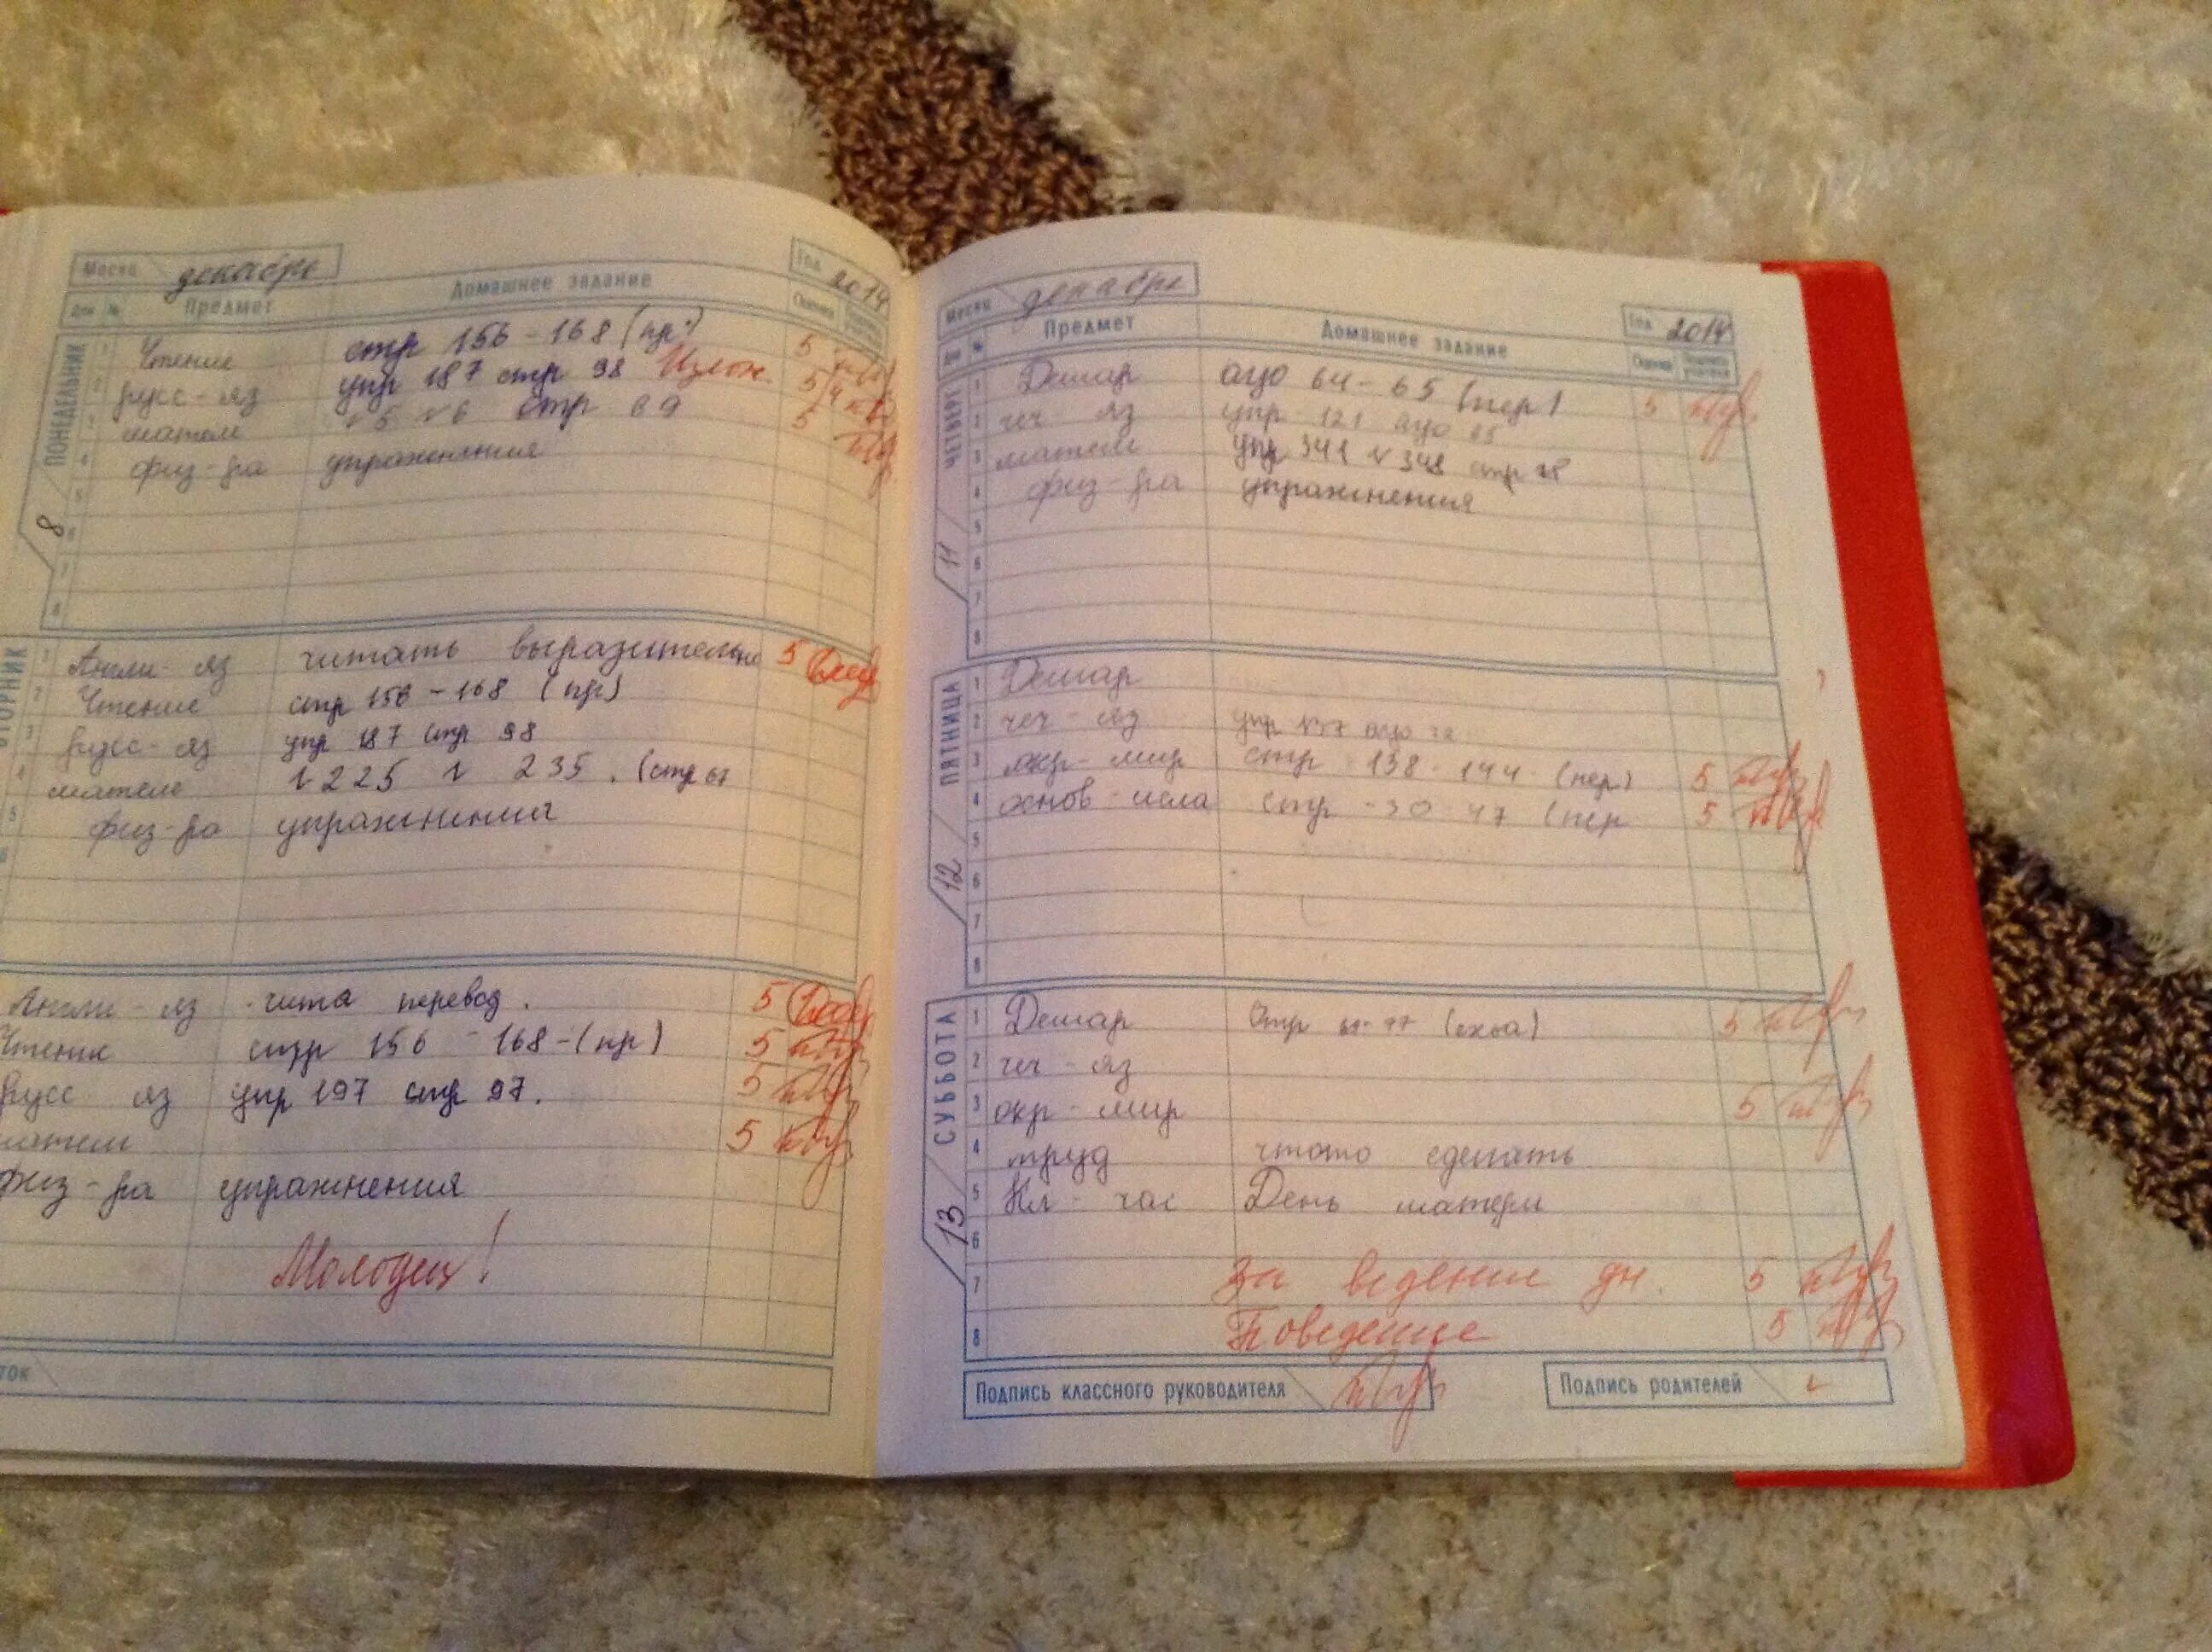 Месяц декабрь Год 2014
Дни № Предмет Домашнее задание Оценка
ПОНЕДЕЛЬНИК 8
1 Чтение стр 156-168 (пр) 5
2 русс-яз упр 187 стр 98 Излож. 5/4
3 матем №5 №6 стр 69 5
4 физ-ра упражнения
5
6
7
8
ВТОРНИК
1 Англи-яз читать выразительно 5
2 Чтение стр 156-168 (пр)
3 русс-яз упр 187 стр 98
4 матем №225 № 235. (стр 67
5 физ-ра упражнения
6
Англи-яз чита перевод. 5
Чтение стр 156-168-(пр) 5
русс яз упр 197 стр 97. 5
матем 5
физ-ра упражнения
Молодец!
Месяц декабрь Год 2014
Дни № Предмет Домашнее задание Оценка Подпись учителя
ЧЕТВЕРГ 11
1 Дешар агIо 64-65 (пер) 5
2 чеч-яз упр 121 агIо 65
3 матем упр 341 № 348 стр
4 физ-ра упражнения
5
6
7
8
ПЯТНИЦА 12
1 Дешар
2 чеч-яз упр 137 агIо 72
3 окр-мир стр 138-144 (пер) 5
4 основ-исла стр-30-47 (пер 5
5
6
7
8
СУББОТА 13
1 Дешар Стр 5
2 чеч-яз
3 окр-мир 5
4 труд чтото сделать
5 Кл-час День матери
6
7 За ведение дн. 5
8 Поведение 5
Подпись классного руководителя
Подпись родителей